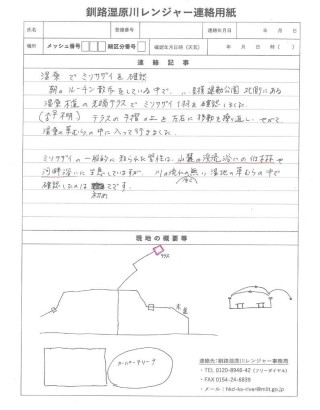 釧路湿原川レンジャー連絡用紙
氏名
登録番号
連絡年月日
年 月 日
場所
メッシュ番号
細区分番号
確認年月日時(天気)
年 月 日 時( )
連絡記事
湿原でミソサザイを確認
朝のルーチン散歩をしている中で、運動公園北側にある
湿原木道の先端テラスでミソサザイ1羽を確認しました。
テラスの手摺の上を左右に移動を繰り返し、やがて
湿原の草むらの中に入って行きました。
ミソサザイの一般的に知られた習性は、山麓の渓流沿いの
河畔沿いに生息していますが、川の流れの無い湿地の草むらの中で
確認したのは初めてです。
現地の概要等
テラス
木道
スーパーアリーナ
連絡先:釧路湿原川レンジャー事務局
・TEL 0120-8946-42(フリーダイヤル)
・FAX 0154-24-6839
・メール:hkd-ks-river@mlit.go.jp